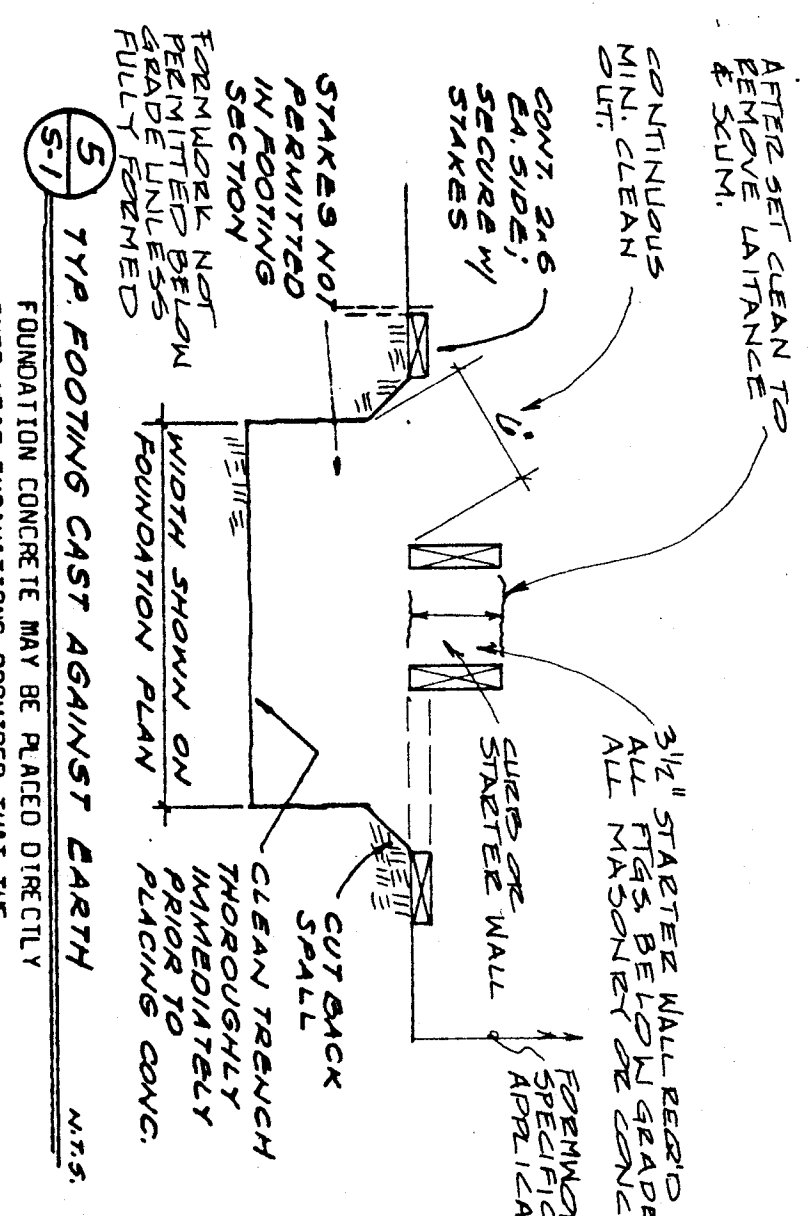 AFTER SET CLEAN TO
REMOVE LAITANCE
& SCUM.
CONTINUOUS
MIN. CLEAN
OUT.
CONT. 2x6
EA. SIDE;
SECURE W/
STAKES
STAKES NOT
PERMITTED
IN FOOTING
SECTION
FORMWORK NOT
PERMITTED BELOW
GRADE UNLESS
FULLY FORMED
6"
3 1/2" STARTER WALL REQ'D
ALL FTGS. BELOW GRADE
ALL MASONRY OR CONC
CURB OR
STARTER WALL
FORMWO
SPECIFIC
APPLICA
CUT BACK
SPALL
CLEAN TRENCH
THOROUGHLY
IMMEDIATELY
PRIOR TO
PLACING CONC.
WIDTH SHOWN ON
FOUNDATION PLAN
5
S-1
TYP. FOOTING CAST AGAINST EARTH
N.T.S.
FOUNDATION CONCRETE MAY BE PLACED DIRECTLY